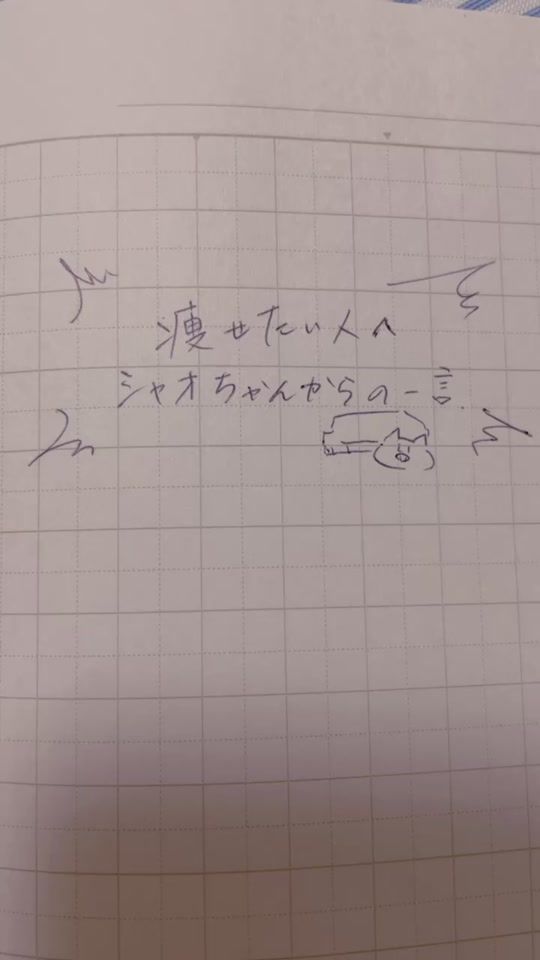 痩せたい人へ
シャオちゃんからの一言.